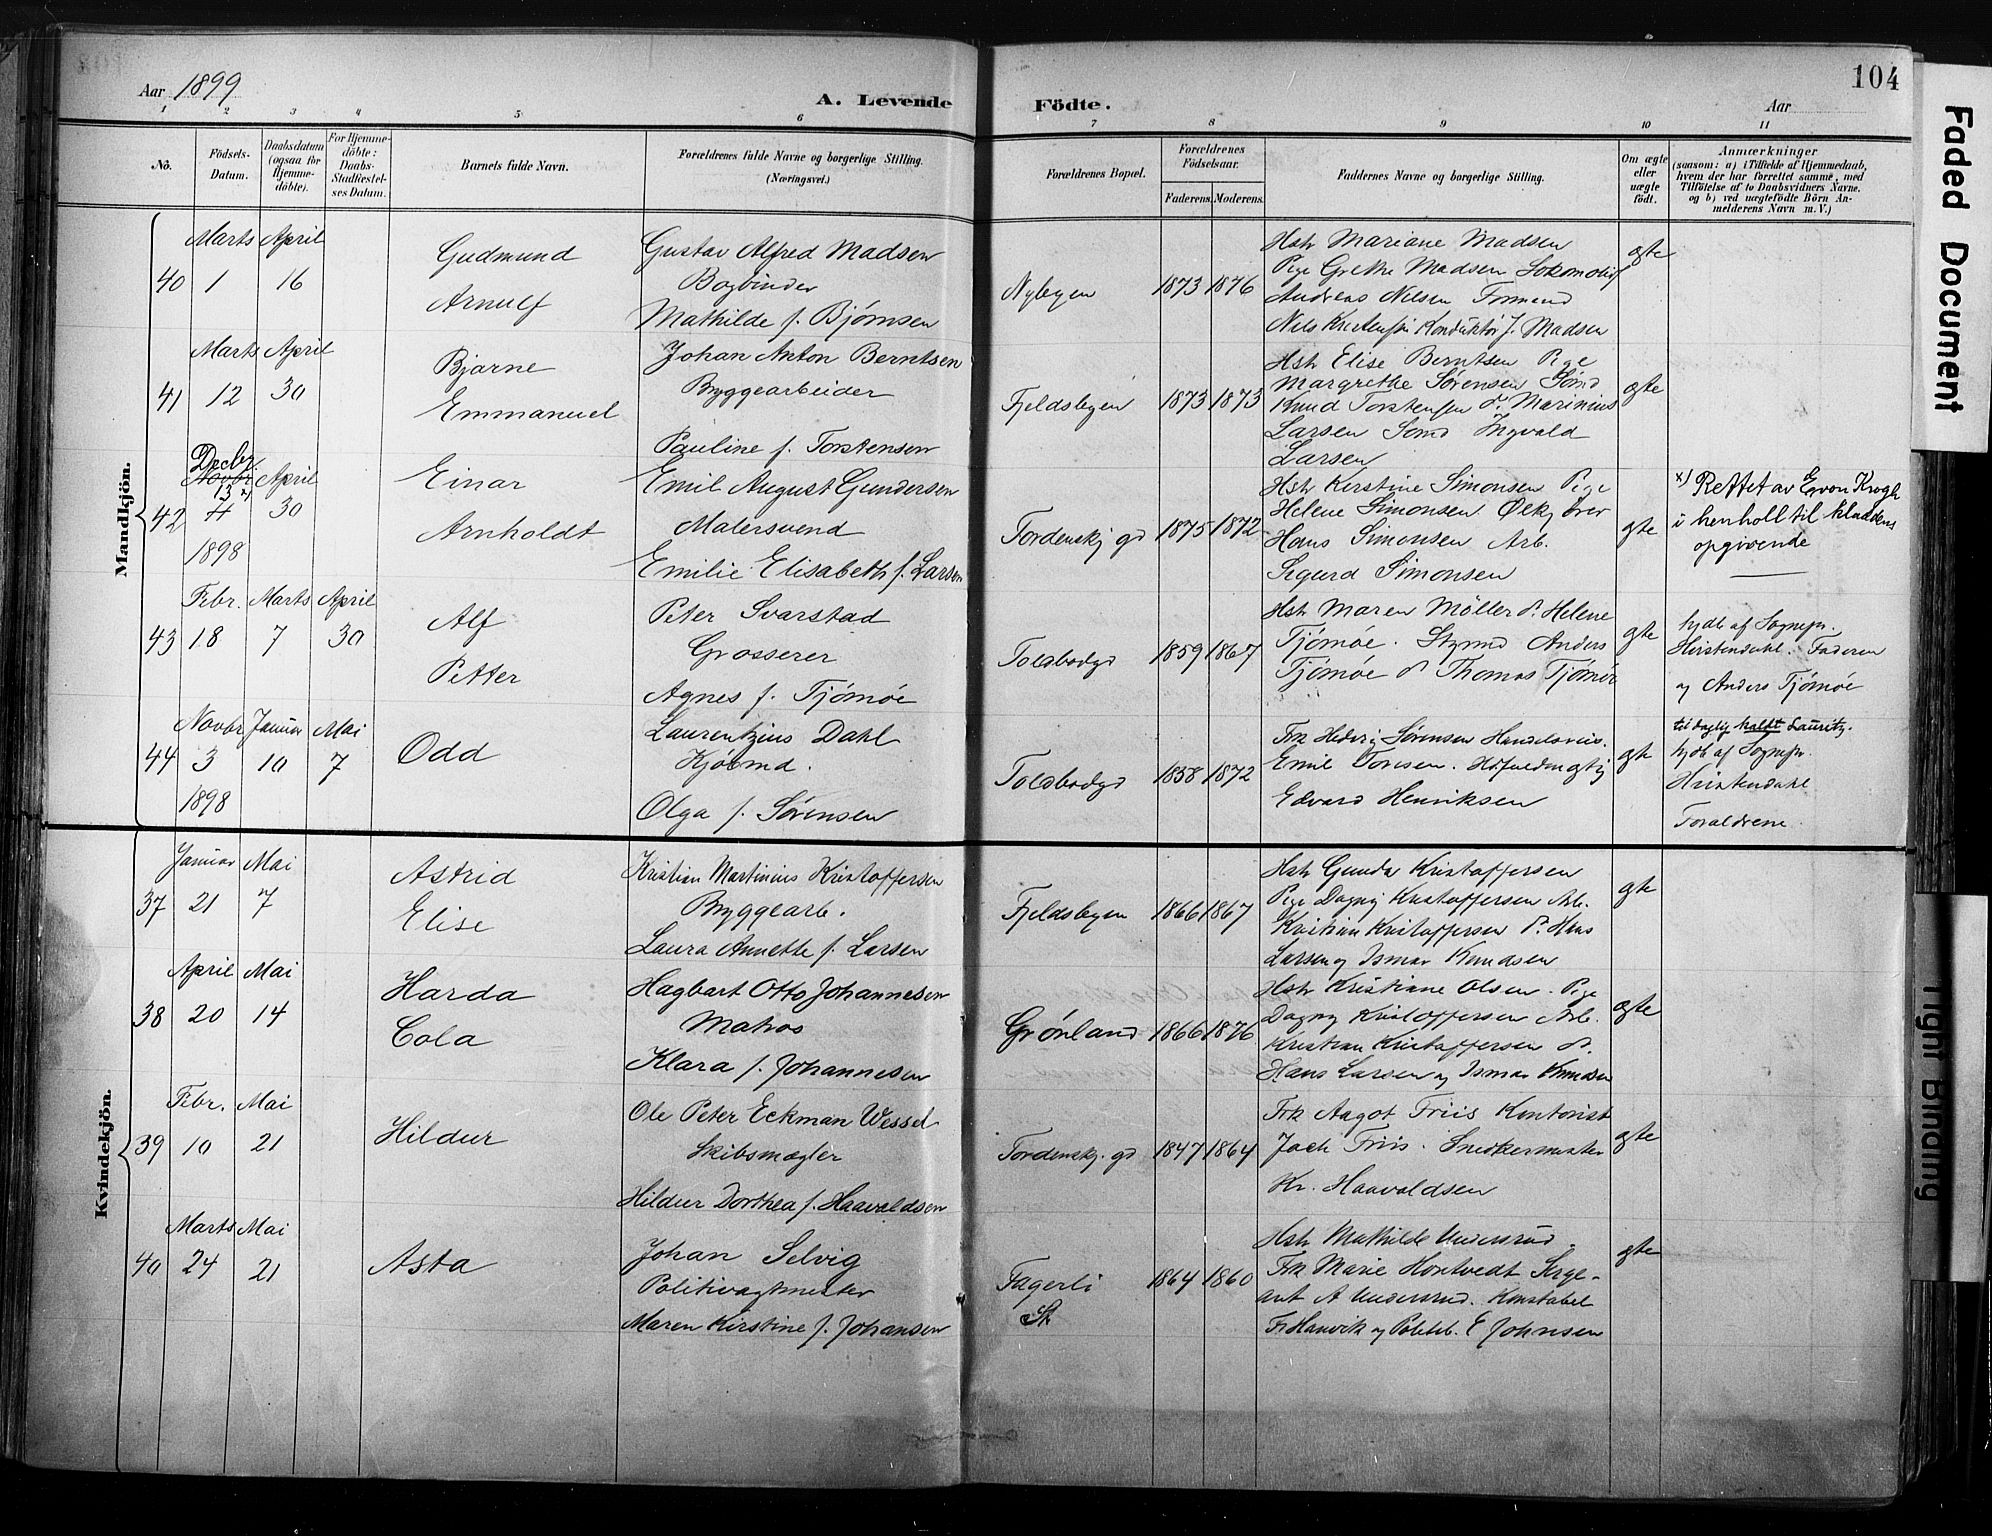 Aar 1899
A. Levende
Födte.
Aar
104
1 2 3 4 5 6 7 8 9 10 11
No.
Födsels-Datum.
Daabsdatum (ogsaa for Hjemme-döbte).
For Hjemme-döbte: Daabs-Stadfæstel-ses Datum.
Barnets fulde Navn.
Forældrenes fulde Navne og borgerlige Stilling.
(Næringsvei.)
Forældrenes Bopæl.
Forældrenes Födselsaar.
Faderens. Moderens.
Faddernes Navne og borgerlige Stilling.
Om ægte eller uægte födt.
Anmærkninger
(saasom: a) i Tilfælde af Hjemmedaab,
hvem der har forrettet samme, med
Tilföielse af to Daabsvidners Navne.
og b) ved uægtefödte Börn An-
melderens Navn m. V.)
Mandkjön.
40
Marts April
1 16
Gudmund
Arnulf
Gustav Alfred Madsen
Bogbinder
Mathilde f. Bjørnsen
Nybyen
1873 1876
Hstr Mariane Madsen
Pige Grethe Madsen Lokomotif
Andreas Nilsen Formand
Nils Kristensen Konduktør J. Madsen
ægte
41
Marts April
12 30
Bjarne
Emmanuel
Johan Anton Berntsen
Byggearbeider
Pauline f. Torstensen
Fjeldsbyen
1873 1873
Hstr Elise Berntsen Pige
Margrethe Sørensen Sømd
Knud Torstensen do Marinius
Larsen Sømd Ingvald
Larsen
ægte
42
Decbr.
Novbr April
13 x)
11 30
1898
Einar
Arnholdt
Emil August Gundersen
Malersvend
Emilie Elisabeth f. Larsen
Tordenskj gd
1875 1872
Hstr Kerstine Simonsen Pige
Helene Simonsen Ølkj brer
Hans Simonsen Arb.
Sigurd Simonsen
ægte
x) Rettet av E von Krogh
i henholl til kladdens
opgivende
43
Febr. Marts April
18 7 30
Alf
Petter
Peter Svarstad
Grosserer
Agnes f. Tjømøe
Toldbodgd
1859 1867
Hstr Maren Möller do Helene
Tjömöe. Styrmd Anders
Tjömöe do Thomas Tjömöe
ægte
hjdb af Sognepr.
Kristendahl. Faderen
og Anders Tjömöe
44
Novbr Januar Mai
3 10 7
1898
Odd
Laurentzius Dahl
Kjøbmd.
Olga f. Sørensen
Toldbodgd
1858 1872
Frk Hedvig Sørensen Handelsreis.
Emil Toresen. Hdfuldmægtig
Edvard Henriksen
ægte
til daglig kaldt Lauritz.
hjdb af Sognepr.
Kristendahl
Forældrene
Kvindekjön.
37
Januar Mai
21 7
Astrid
Elise
Kristian Martinius Kristoffersen
Byggearb.
Laura Annette f. Larsen
Fjeldsbyen
1866 1867
Hstr Gunda Kristoffersen
Pige Dagny Kristoffersen Arb.
Kristian Kristoffersen do Hans
Larsen og Ismar Knudsen
ægte
38
April Mai
20 14
Harda
Cola
Hagbart Otto Johannesen
Matros
Klara f. Johannesen
Grønland
1866 1876
Hstr Kristiane Olsen. Pige
Dagny Kristoffersen Arb.
Kristian Kristoffersen do.
Hans Larsen og Ismar Knudsen
ægte
39
Febr. Mai
10 21
Hildur
Ole Peter Eckman Wessel
Skibsmægler
Hildur Dorthea f. Haavaldsen
Tordenskj. gd
1847 1864
Frk Aagot Friis Kontorist
Jach Friis. Snedkermester
Kr. Haavaldsen
ægte
40
Marts Mai
24 21
Asta
Johan Selvig
Politivagtmester
Maren Kirstine f. Johansen
Fagerli
St
1864 1860
Hstr Mathilde Undersrud.
Frk Marie Hontvedt Serge-
ant A Undersrud. Konstabel
Fr Hanvik og Politib. E Johnsen
ægte
Faded Document
Tight Binding